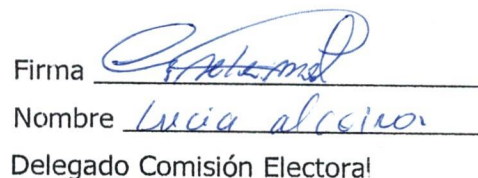 Firma
Nombre Lucia
Delegado Comisión Electoral